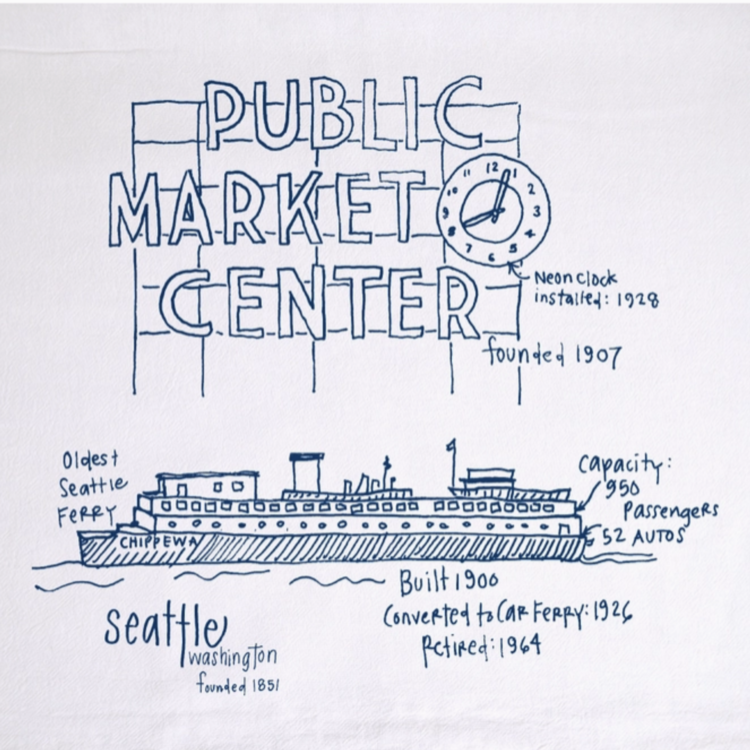 PUBLIC
MARKET
CENTER
12
1
2
3
4
5
6
7
8
9
10
11
Neon clock
installed: 1928
founded 1907
Oldest
Seattle
FERRY
Capacity:
950
Passengers
52 AUTOS
CHIPPEWA
Built 1900
Converted to Car Ferry: 1926
Retired: 1964
seattle
washington
founded 1851